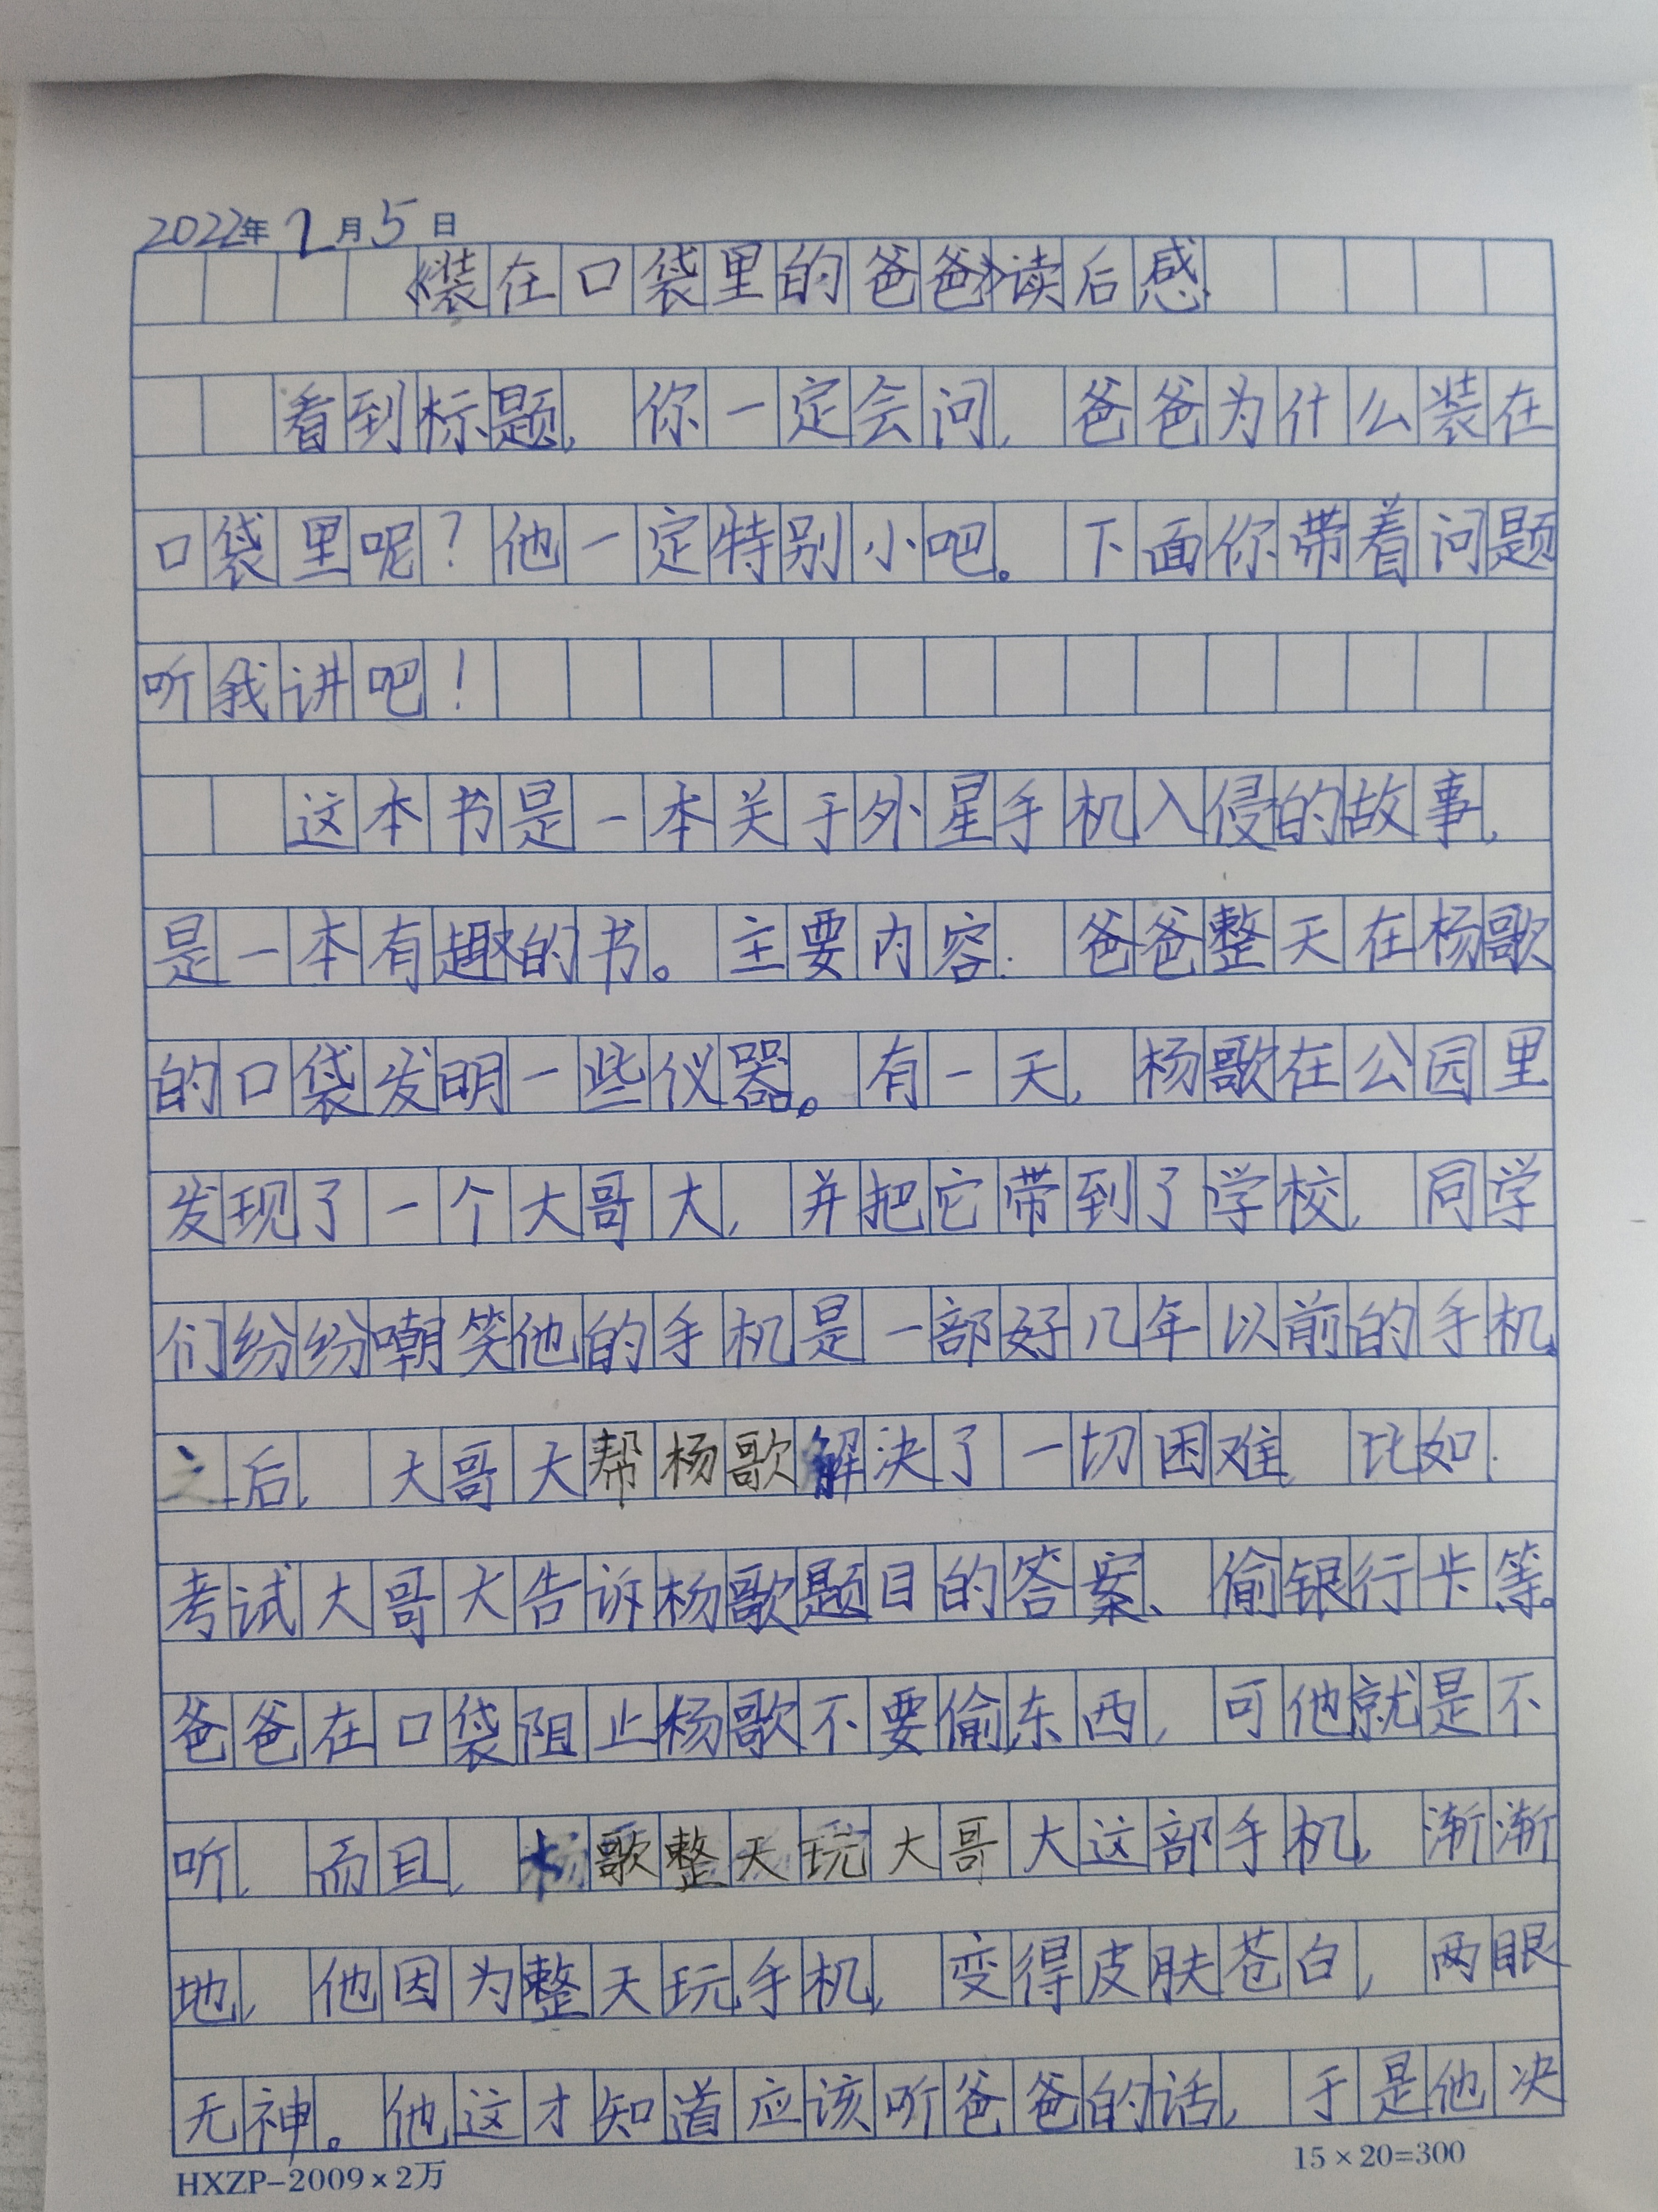 2022年2月5日
《装在口袋里的爸爸》读后感
看到标题,你一定会问,爸爸为什么装在
口袋里呢?他一定特别小吧。下面你带着问题
听我讲吧!
这本书是一本关于外星手机入侵的故事,
是一本有趣的书。主要内容:爸爸整天在杨歌
的口袋发明一些仪器。有一天,杨歌在公园里
发现了一个大哥大,并把它带到了学校,同学
们纷纷嘲笑他的手机是一部好几年以前的手机,
之后,大哥大帮杨歌解决了一切困难,比如:
考试大哥大告诉杨歌题目的答案、偷银行卡等。
爸爸在口袋阻止杨歌不要偷东西,可他就是不
听,而且,杨歌整天玩大哥大这部手机,渐渐
地,他因为整天玩手机,变得皮肤苍白,两眼
无神。他这才知道应该听爸爸的话,于是他决
HXZP-2009×2万
15×20=300